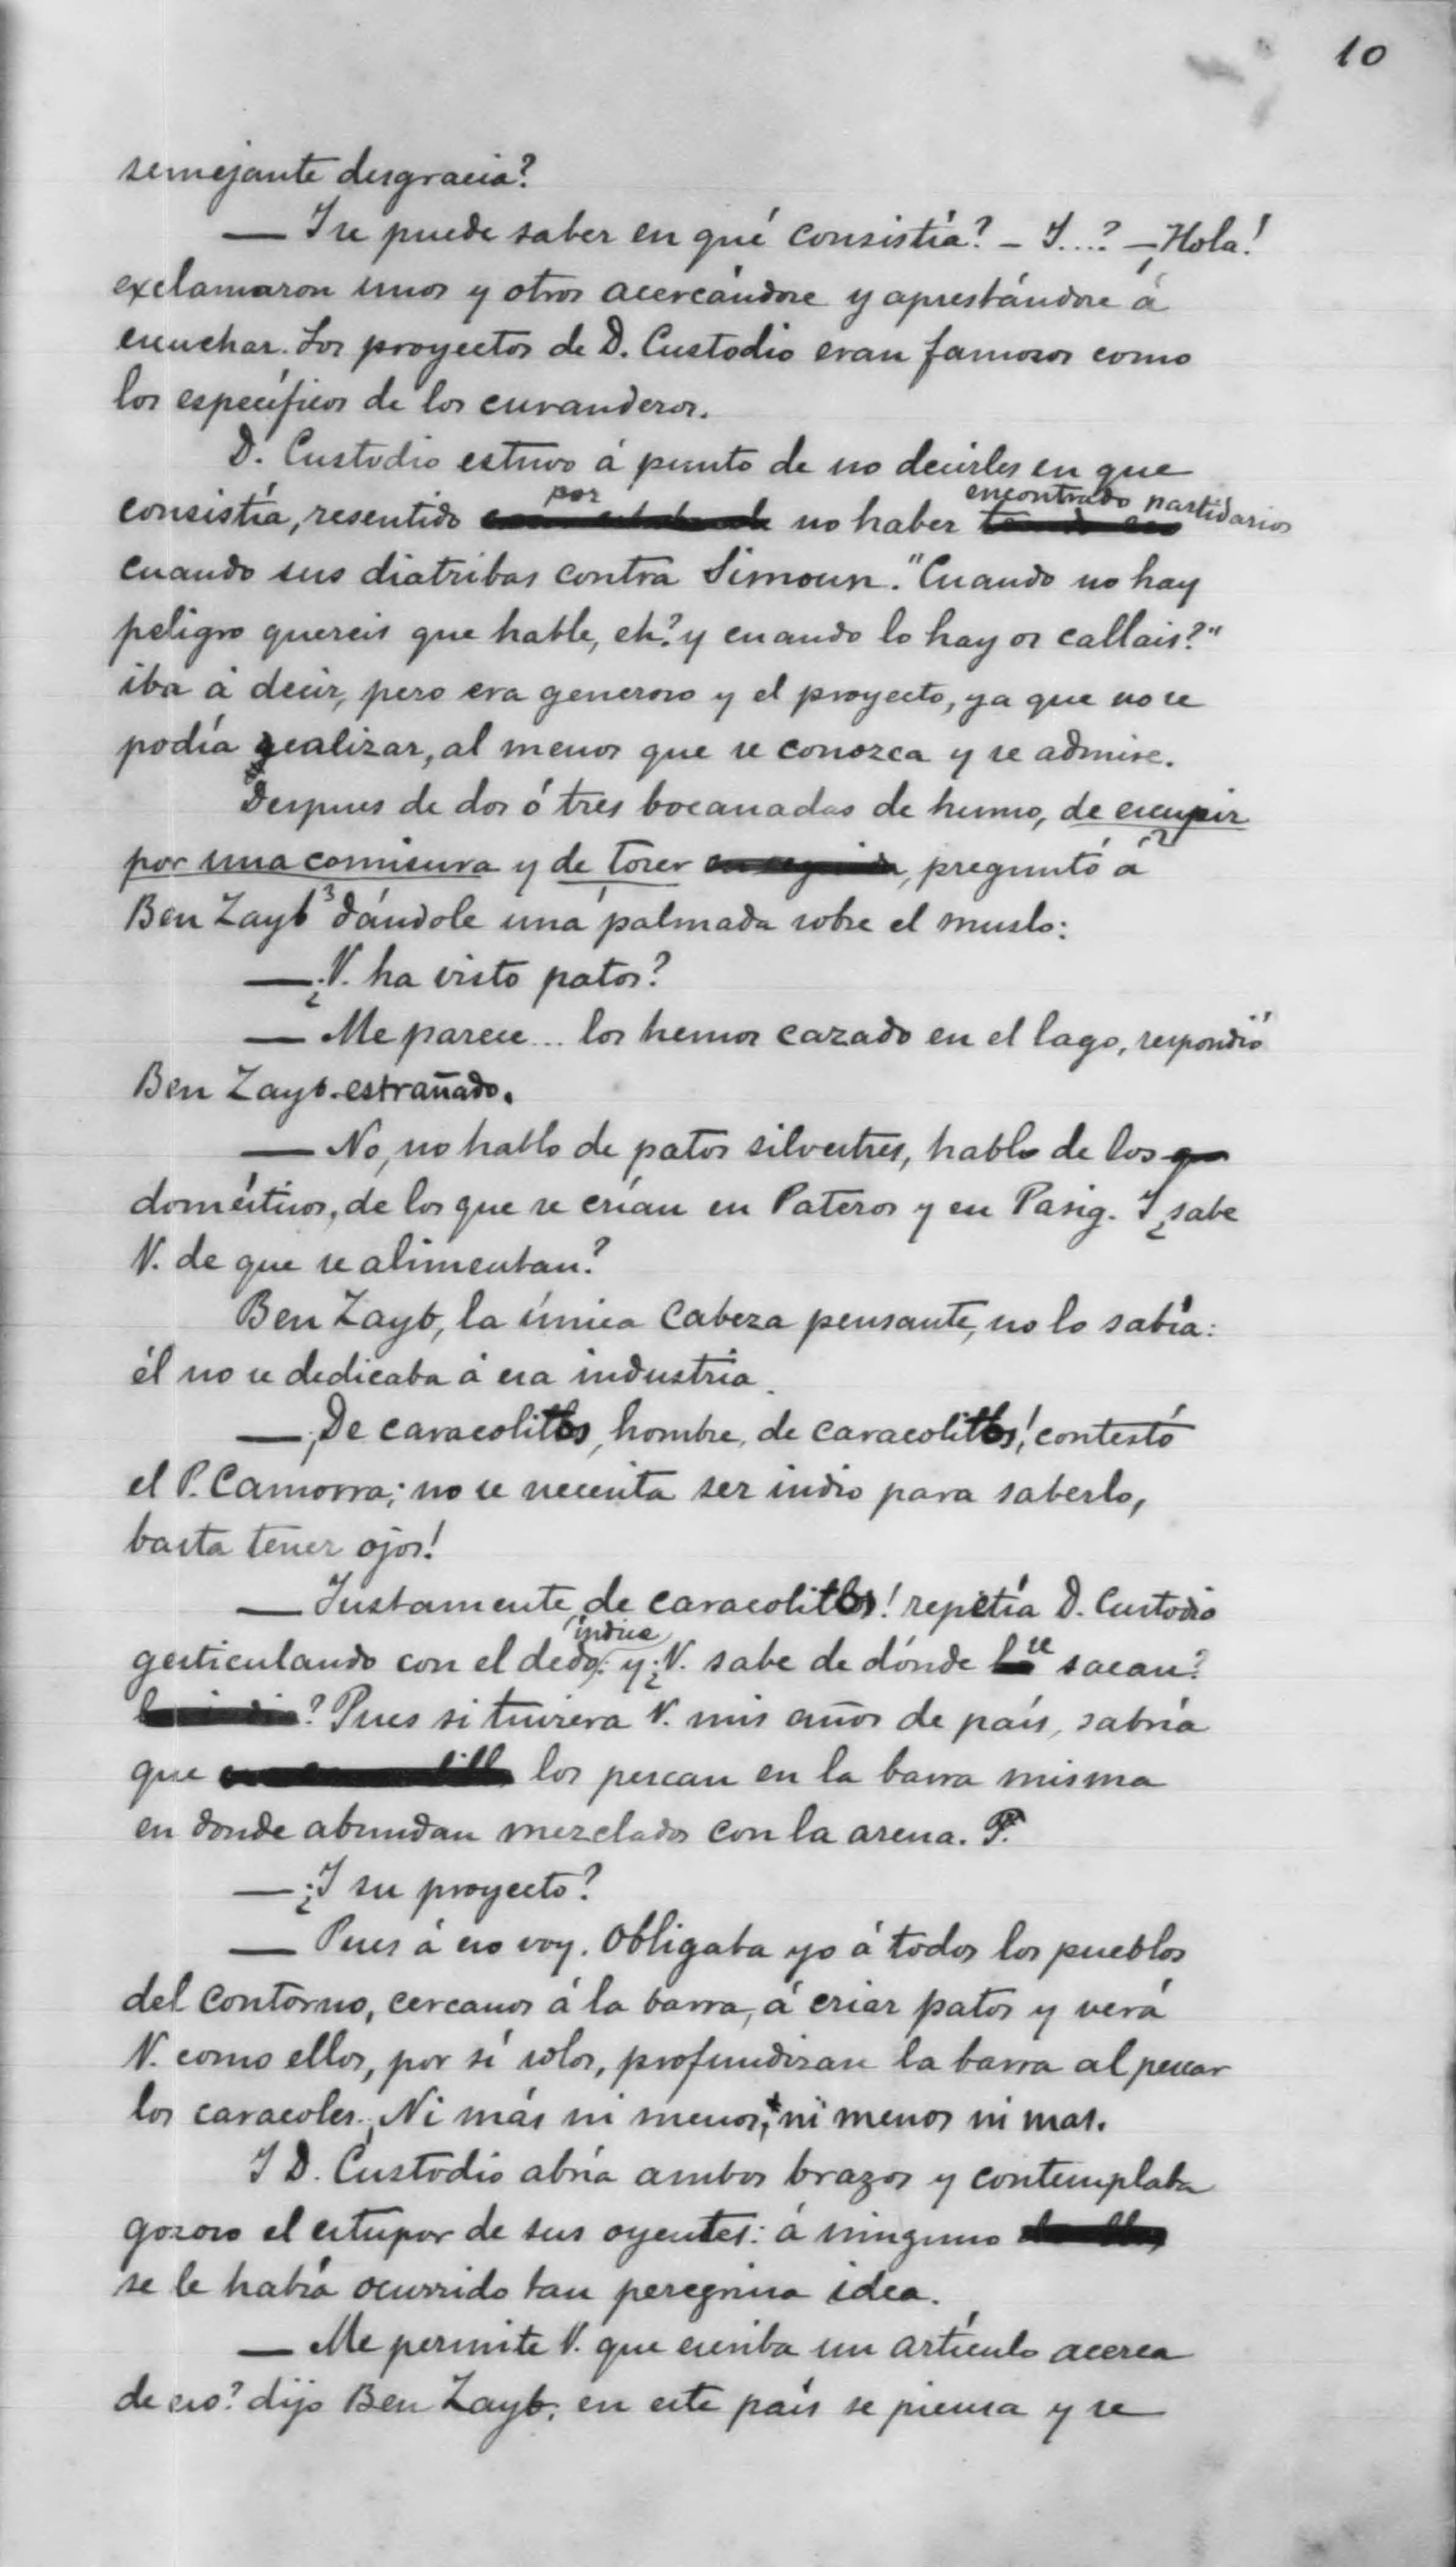 10
semejante desgracia?
— Y se puede saber en qué consistía? – Y...? –¡Hola!
exclamaron unos y otros acercándose y aprestándose á
escuchar. Los proyectos de D. Custodio eran famosos como
los específicos de los curanderos.
D. Custodio estuvo á punto de no decirles en que
por encontrado partidarios
consistía, resentido no haber
cuando sus diatribas contra Simoun. "Cuando no hay
peligro quereis que hable, eh? y cuando lo hay os callais?"
iba á decir, pero era generoso y el proyecto, ya que no se
podía realizar, al menos que se conozca y se admire.
Despues de dos ó tres bocanadas de humo, de escupir
por una comisura y de toser, preguntó á
Ben Zayb dándole una palmada sobre el muslo:
—¿V. ha visto patos?
— Me parece... los hemos cazado en el lago, respondió
Ben Zayb estrañado.
— No, no hablo de patos silvestres, hablo de los
domésticos, de los que se crían en Pateros y en Pasig. Y ¿sabe
V. de que se alimentan?
Ben Zayb, la única cabeza pensante, no lo sabía:
él no se dedicaba á esa industria.
—¡De caracolitos, hombre, de caracolitos! contestó
el P. Camorra; no se necesita ser indio para saberlo,
basta tener ojos!
— Justamente, de caracolitos! repetía D. Custodio
índice
gesticulando con el dedo; y ¿V. sabe de dónde se sacan?
? Pues si tuviera V. mis años de país, sabría
que los pescan en la barra misma
en donde abundan mezclados con la arena. P.
—¿Y su proyecto?
— Pues á eso voy. Obligaba yo á todos los pueblos
del contorno, cercanos á la barra, á criar patos y verá
V. como ellos, por sí solos, profundizan la barra al pescar
los caracoles. ¡Ni más ni menos, ni menos ni mas.
Y D. Custodio abría ambos brazos y contemplaba
gozoso el estupor de sus oyentes: á ninguno
se le había ocurrido tan peregrina idea.
— Me permite V. que escriba un artículo acerca
de eso? dijo Ben Zayb; en este país se piensa y se